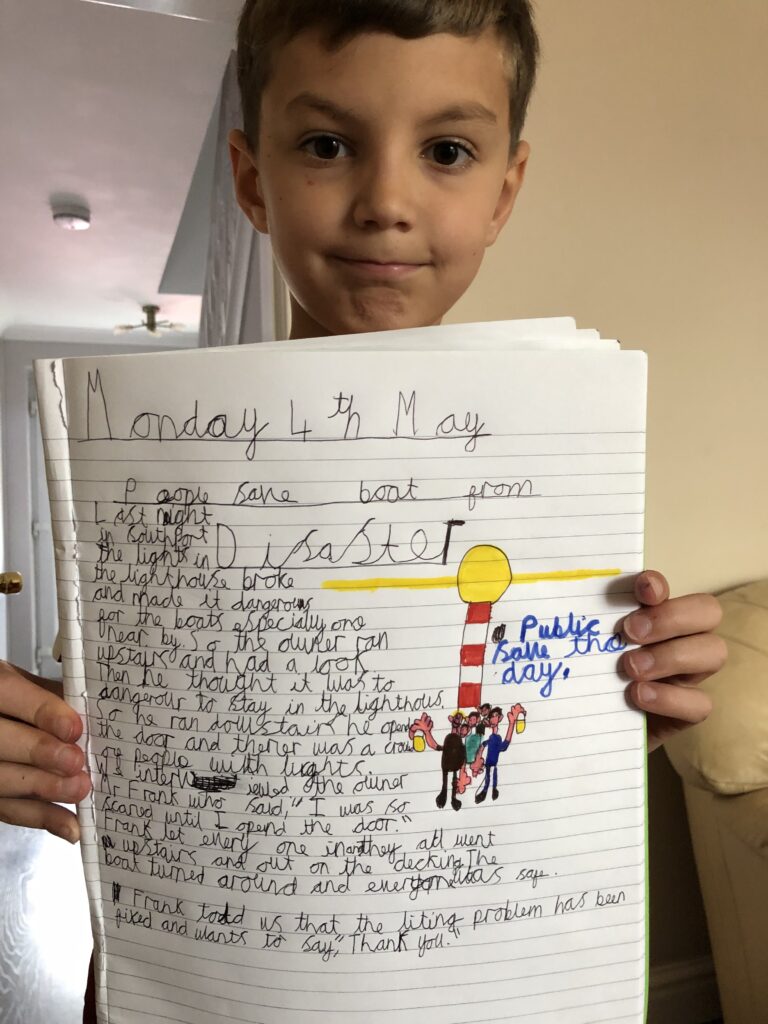 Monday 4th May
People save boat from
Disaster
Last night
in Southport
the lights in
the lighthouse broke
and made it dangerous
for the boats especially one
near by. So the owner ran
upstairs and had a look
Then he thought it was to
dangerour to stay in the lighthous.
So he ran downstairs he opend
the door and therer was a crowd
of people with lights.
We interviewed the owner
Mr Frank who said," I was so
scared until I opend the door."
Frank let every one in and they all went
upstairs and out on the decking. The
boat turned around and everyone was safe.
Frank told us that the liting problem has been
fixed and wants to say," Thank you."
Public
save the
day.